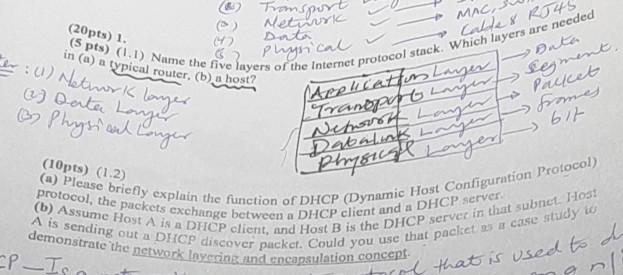 Transport
(3) Network → MAC,
(4) Data → Cable & RJ45
(5) Physical
(20pts) 1.
(5 pts) (1.1) Name the five layers of the Internet protocol stack. Which layers are needed
in (a) a typical router, (b) a host?
: (1) Network layer
(2) Data Layer
(3) Physical Layer
Application Layer → Data
Transport Layer → Segment.
Network Layer → Packet
Datalink Layer → frames
Physical Layer → bit
(10pts) (1.2)
(a) Please briefly explain the function of DHCP (Dynamic Host Configuration Protocol)
protocol, the packets exchange between a DHCP client and a DHCP server.
(b) Assume Host A is a DHCP client, and Host B is the DHCP server in that subnet. Host
A is sending out a DHCP discover packet. Could you use that packet as a case study to
demonstrate the network layering and encapsulation concept.
that is used to